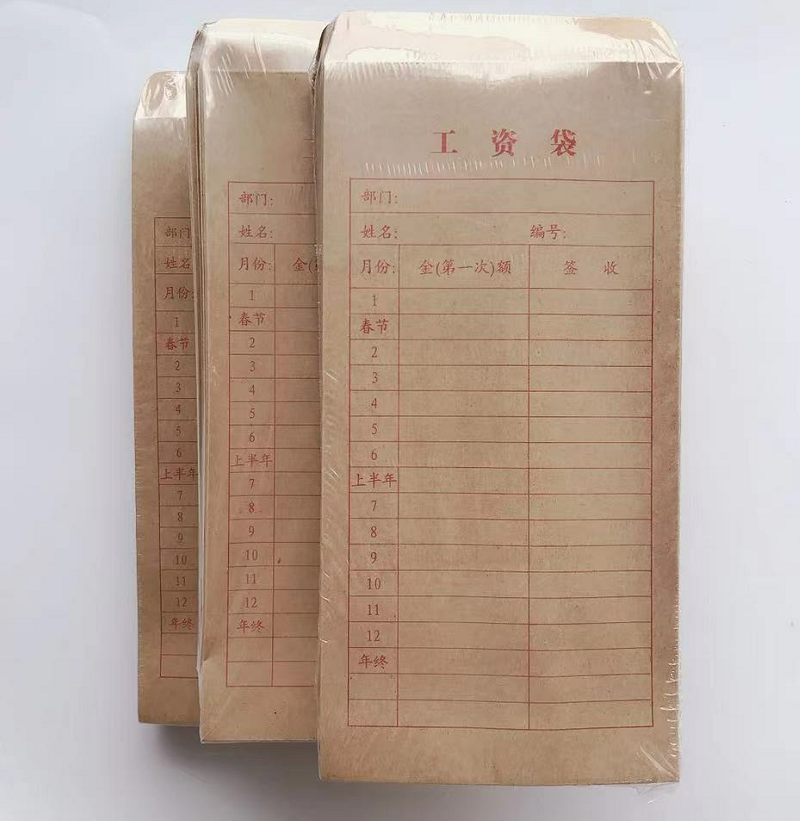 工资袋
部门:
姓名: 编号:
月份: 金(第一次)额 签收
1
春节
2
3
4
5
6
上半年
7
8
9
10
11
12
年终
部门:
姓名:
月份: 金(
1
春节
2
3
4
5
6
上半年
7
8
9
10
11
12
年终
部门
姓名
月份:
1
春节
2
3
4
5
6
上半年
7
8
9
10
11
12
年终